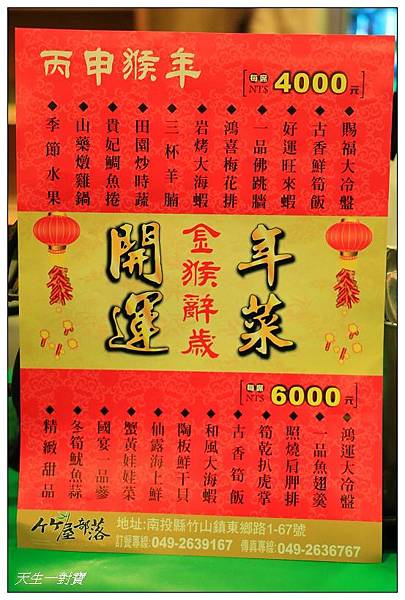 丙申猴年
每席 NT$ 4000元
賜福大冷盤
古香鮮筍飯
好運旺來蝦
一品佛跳牆
鴻喜梅花排
岩烤大海蝦
三杯羊腩
田園炒時蔬
貴妃鯛魚捲
山藥燉雞鍋
季節水果
年菜
金猴辭歲
開運
每席 NT$ 6000元
鴻運大冷盤
一品魚翅羹
照燒肩胛排
筍乾扒虎掌
古香筍飯
和風大海蝦
陶板鮮干貝
仙露海上鮮
蟹黃娃娃菜
國宴一品蔘
冬筍魷魚蒜
精緻甜品
竹屋部落
地址:南投縣竹山鎮東鄉路1-67號
訂餐專線:049-2639167 傳真專線:049-2636767
天生一對寶